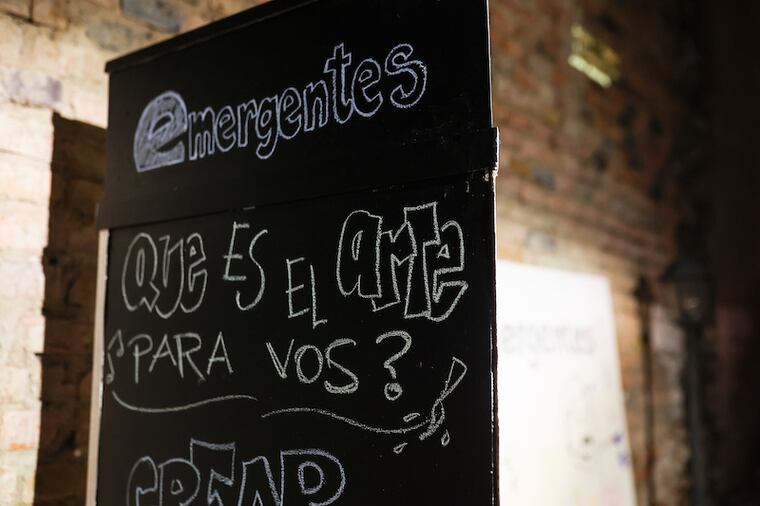 emergentes
QUE ES EL arte
PARA VOS?
CREAR
ergentes